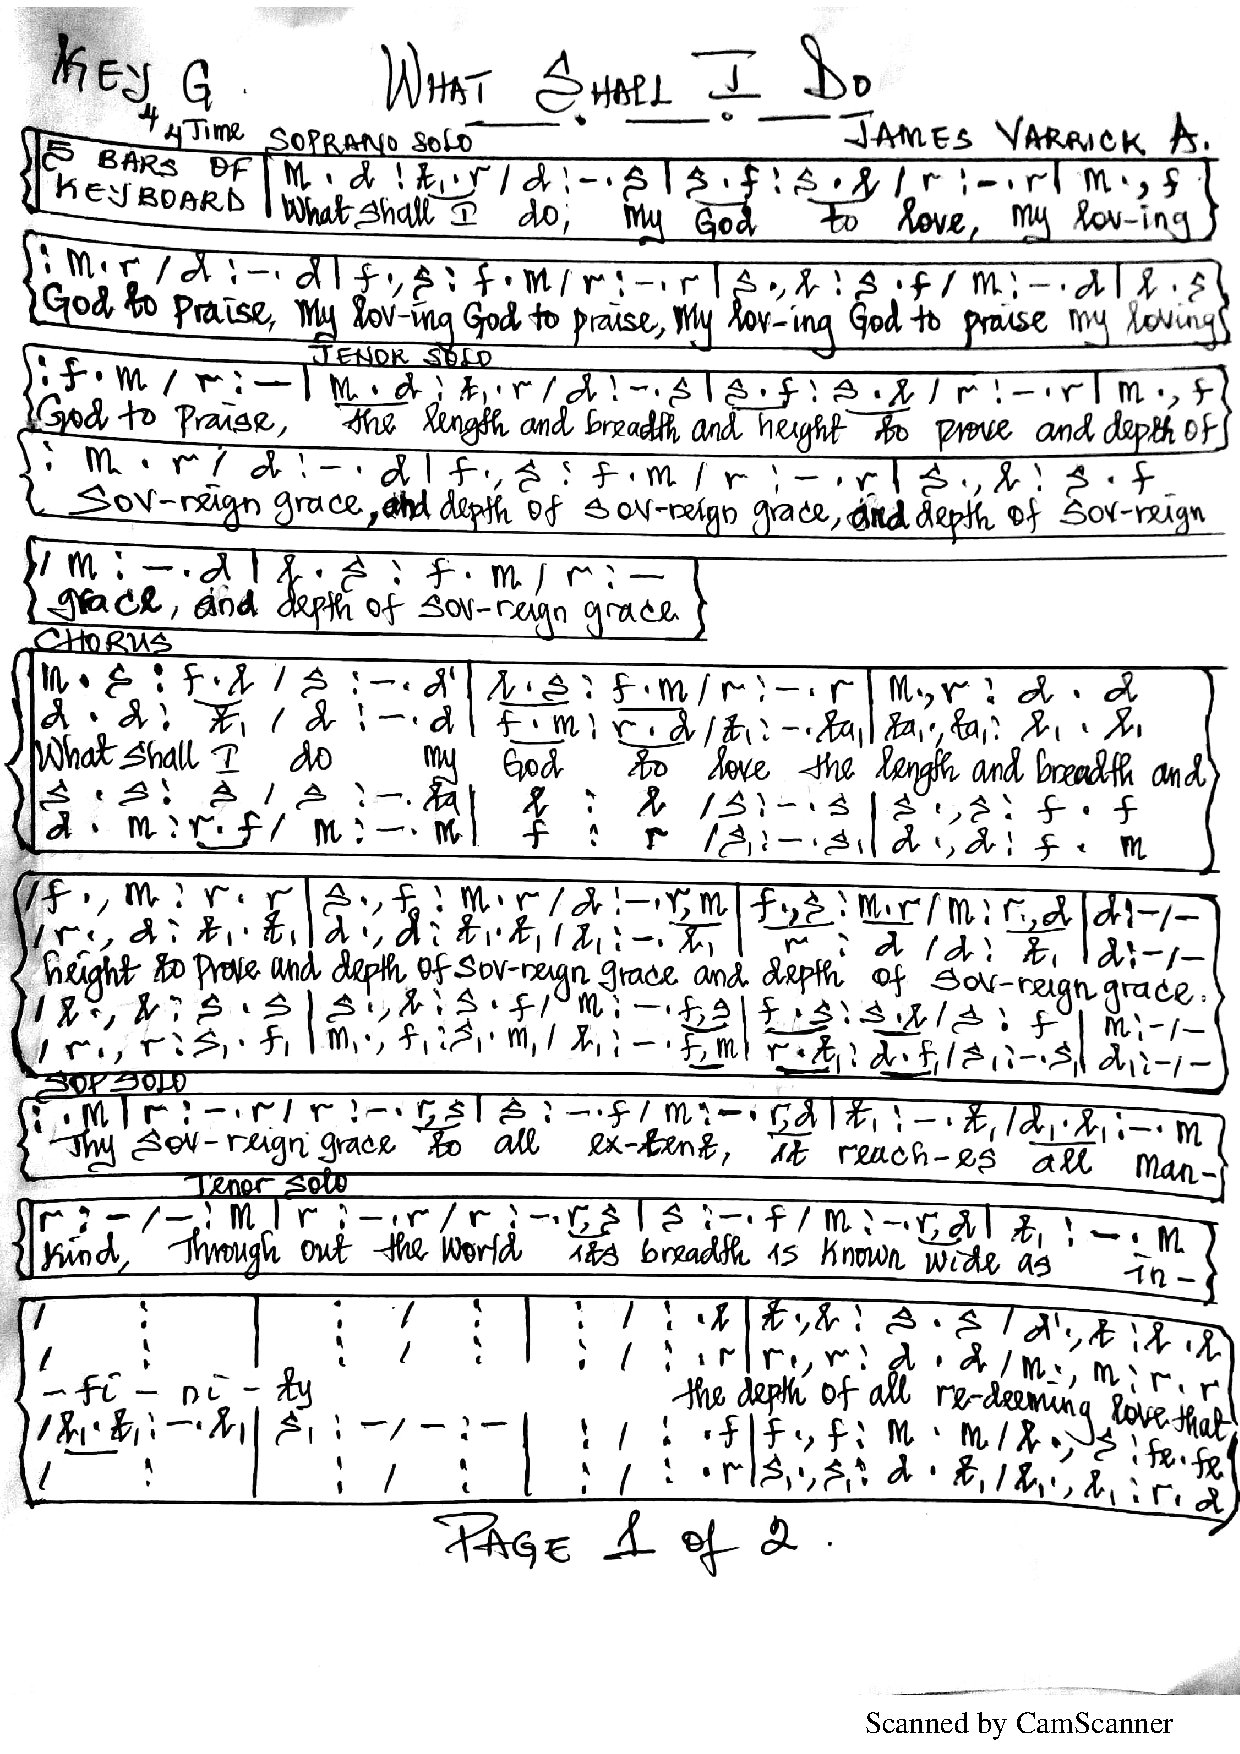 KEY G. WHAT SHALL I DO
4/4 Time SOPRANO SOLO JAMES VARRICK A.
5 BARS OF KEYBOARD | m . d : t₁ . r / d : - . s | s . f : s . l / r : - . r | m . , f
What shall I do; my God to love, my lov-ing
: m . r / d : - . d | f . , s : f . m / r : - . r | s . , l : s . f / m : - . d | l . s
God to praise, my lov-ing God to praise, my lov-ing God to praise my loving
TENOR SOLO
: f . m / r : - | m . d : t₁ . r / d : - . s | s . f : s . l / r : - . r | m . , f
God to praise, the length and breadth and height to prove and depth of
: m . r / d : - . d | f . , s : f . m / r : - . r | s . , l : s . f
Sov-reign grace, and depth of sov-reign grace, and depth of sov-reign
/ m : - . d | l . s : f . m / r : -
grace, and depth of sov-reign grace
CHORUS
m . s : f . l / s : - . d' | l . s : f . m / r : - . r | m . , r : d . d
d . d : t₁ / d : - . d | f . m : r . d / t₁ : - . ta₁ | ta₁ . , ta₁ : l₁ . l₁
What shall I do my God to love the length and breadth and
s . s : s / s : - . ta | l : l / s : - . s | s . , s : f . f
d . m : r . f / m : - . m | f : r / s₁ : - . s₁ | d . , d : f . m
/ f . , m : r . r | s . , f : m . r / d : - . r , m | f . , s : m . r / m : r . , d | d : - / -
/ r . , d : t₁ . t₁ | d . , d : t₁ . t₁ / l₁ : - . l₁ | r : d / d : t₁ | d : - / -
height to prove and depth of sov-reign grace and depth of sov-reign grace.
/ l . , l : s . s | s . , l : s . f / m : - . f , s | f . s : s . l / s : f | m : - / -
/ r . , r : s₁ . f₁ | m₁ . , f₁ : s₁ . m₁ / l₁ : - . f , m | r . t₁ : d . f₁ / s₁ : - . s₁ | d₁ : - / -
SOP SOLO
: . m | r : - . r / r : - . r , s | s : - . f / m : - . r , d | t₁ : - . t₁ / d₁ . l₁ : - . m
Thy sov-reign grace to all ex-tent, it reach-es all man-
Tenor Solo
r : - / - : m | r : - . r / r : - . r , s | s : - . f / m : - . r , d | t₁ : - . m
kind, Through out the world its breadth is known wide as in-
/ : | : / : | : / : . l | t . , l : s . s / d' . , t : l . l
/ : | : / : | : / : . r | r . , r : d . d / m . , m : r . r
-fi-ni-ty the depth of all re-deeming love that
/ l₁ . t₁ : - . l₁ | s₁ : - / - : - | : / : . f | f . , f : m . m / l . , s : fe . fe
/ : | : / : | : / : . r | s₁ . , s₁ : d . t₁ / l₁ . , l₁ : r . d
PAGE 1 of 2.
Scanned by CamScanner